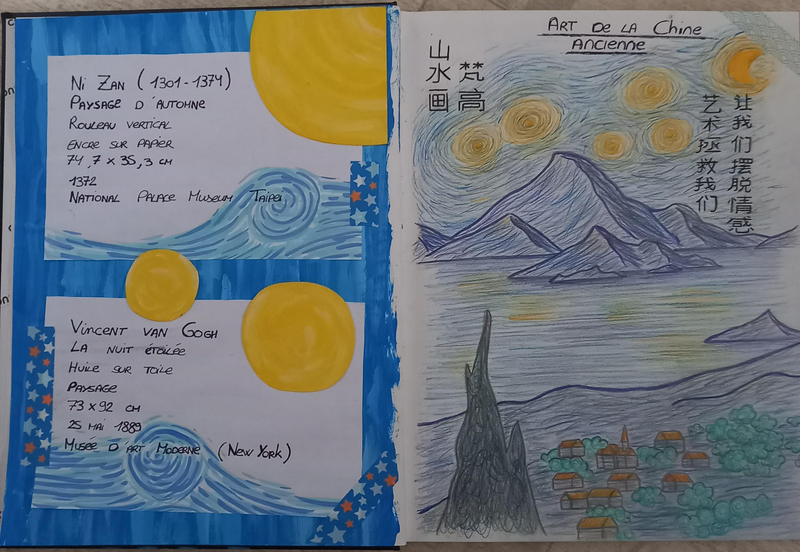 Ni Zan (1301-1374)
Paysage d'automne
Rouleau vertical
encre sur papier
74,7 x 35,3 cm
1372
National Palace Museum Taipei
Vincent van Gogh
La nuit étoilée
Huile sur toile
Paysage
73 x 92 cm
25 mai 1889
Musée d'art Moderne (New York)
Art de la Chine
Ancienne
梵高
山水画
让我们摆脱情感
艺术拯救我们